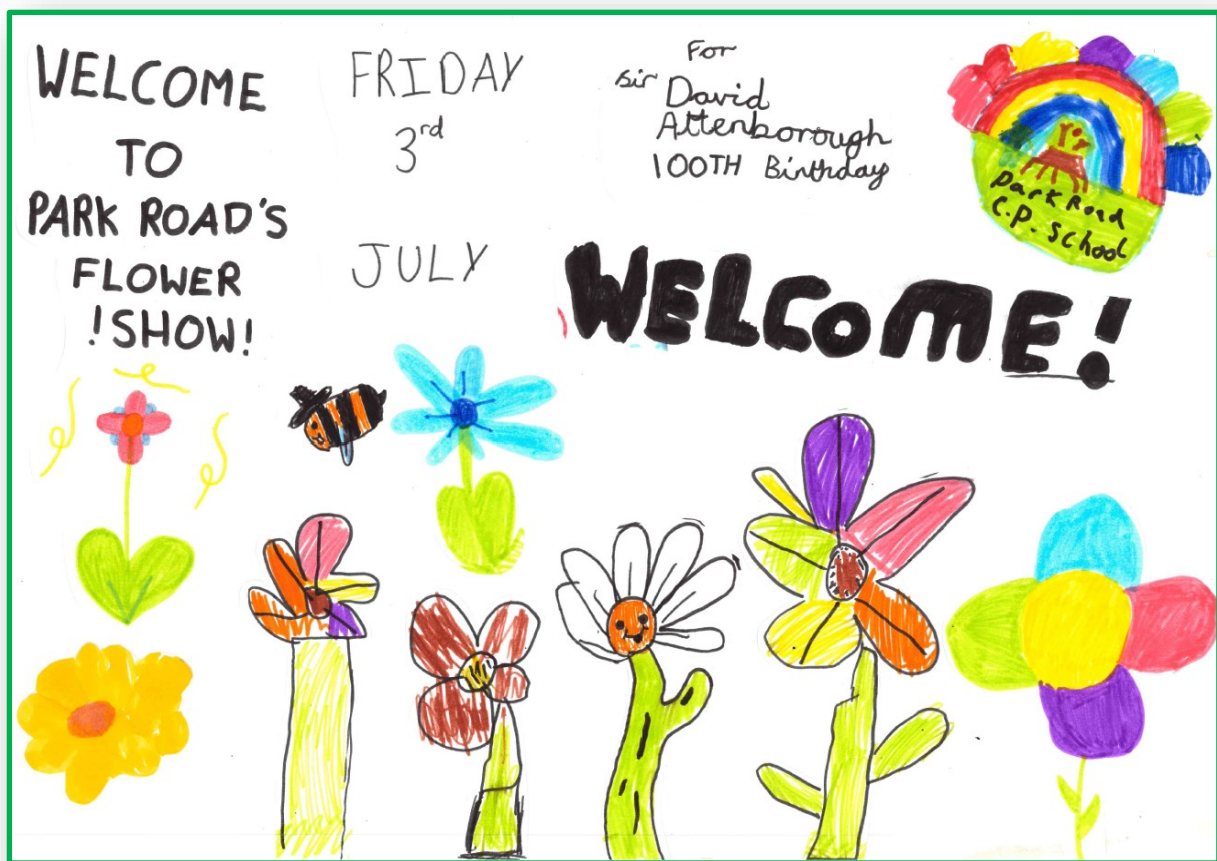 WELCOME
TO
PARK ROAD'S
FLOWER
!SHOW!
FRIDAY
3rd
JULY
For
Sir David
Attenborough
100TH Birthday
Park Road
C.P. School
WELCOME!